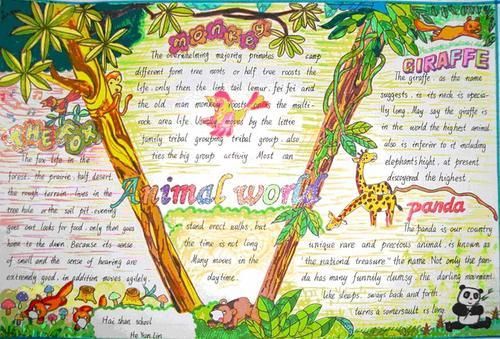 monkey
The overwhelming majority primates camp
different form tree roots or half true roosts the
life, only then the link tail lemur, fei fei and
the old man monkey roosts the multi-
rock area life. Usual moves by the little
family tribal grouping tribal group, also
ties the big group activity Most can
stand erect walks, but
the time is not long
Many moves in the
daytime.
Animal world
THE FOX
The fox life in the
forest, the prairie, half desert,
the rough terrain lives in the
tree hole or the soil pit, evening
goes out, looks for food, only then goes
home to the dawn. Because its sense
of smell and the sense of hearing are
extremely good, in addition moves agilely.
Hai shan school
He Yan Lin
GIRAFFE
The giraffe, as the name
suggests, is its neck is specia-
lly long. May say the giraffe is
in the world the highest animal
also is inferior to it including
elephant's hight, at present
discovered the highest.
panda
The panda is our country
unique rare and precious animal, is known as
"the national treasure" the name. Not only the pan-
da has many funnily clumsy, the darling movement.
like sleeps, sways back and forth.
turns a somersault is long.